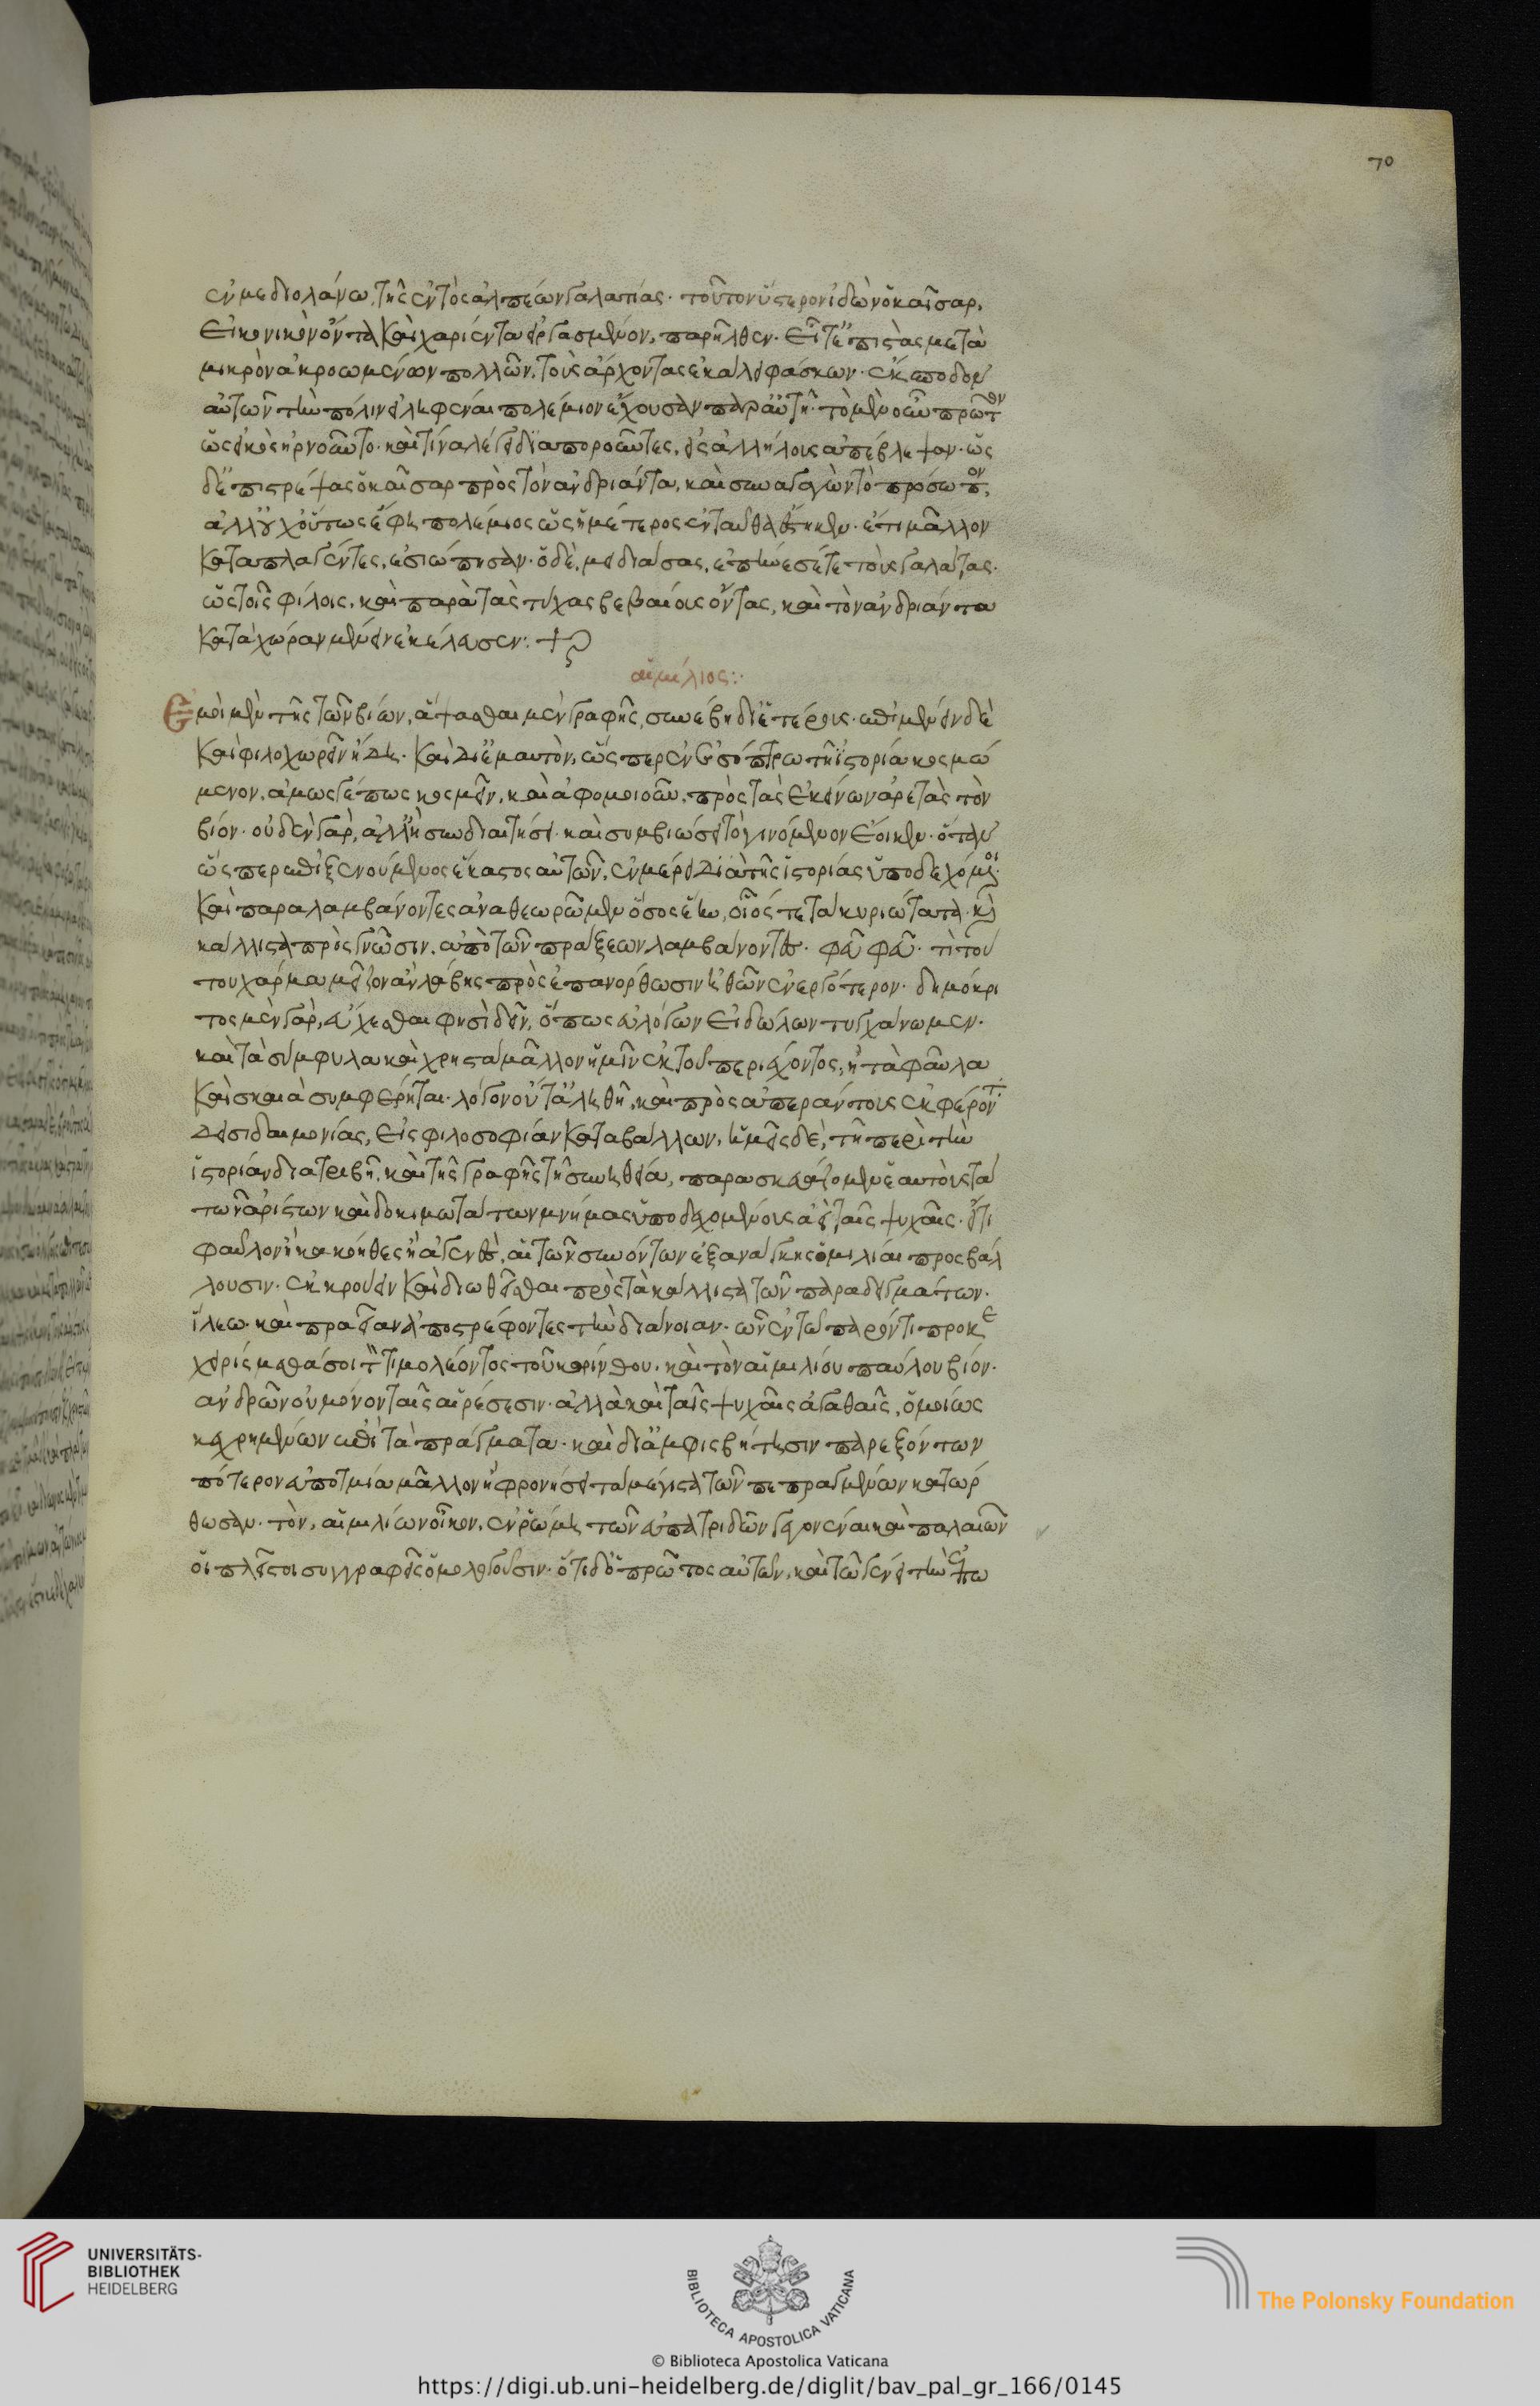 70
ἐν μεδιολάνω, τῆς ἐντὸς ἄλπεων γαλατίας. τοῦτον ὕστερον ἰδὼν ὁ καῖσαρ,
εἰκονικὸν ὄντα καὶ χαριέντως εἰργασμένον, παρῆλθεν. εἶτ' ἐπιστὰς μετὰ
μικρὸν ἀκροωμένων πολλῶν, τοὺς ἄρχοντας ἐκάλει φάσκων.
αὐτῶν τὴν πόλιν εἰληφέναι πολέμιον ἔχουσαν παρ' αὑτῆ. τὸ μὲν οὖν πρῶτον
ὡς εἰκὸς ἠρνοῦντο. καὶ τίνα λέγει διαποροῦντες, εἰς ἀλλήλους ἀπέβλεψαν. ὡς
δ' ἐπιστρέψας ὁ καῖσαρ πρὸς τὸν ἀνδριάντα, καὶ συναγαγὼν τὸ πρόσωπον,
ἀλλ' οὐχ οὕτως ἔφη πολέμιος ὡς ἡμέτερος ἐνταῦθα ἕστηκεν. ἔτι μᾶλλον
καταπλαγέντες, ἐσιώπησαν. ὁ δὲ, μειδιάσας, ἐπήνεσέ τε τοὺς γαλάτας.
ὡς τοῖς φίλοις, καὶ παρὰ τὰς τύχας βεβαίους ὄντας, καὶ τὸν ἀνδριάντα
κατὰ χώραν μένειν ἐκέλευσεν:
αἰμίλιος:
Ἐμοὶ μὲν τῆς τῶν βίων, ἅψασθαι μὲν γραφῆς, συνέβη δι' ἑτέρους. ἐπιμένειν δὲ
καὶ φιλοχωρεῖν ἤδη. καὶ δι' ἐμαυτὸν, ὥσπερ ἐν ἐσόπτρω τῆ ἱστορία
μενον, ἁμωσγέπως κοσμεῖν, καὶ ἀφομοιοῦν, πρὸς τὰς ἐκείνων ἀρετὰς τὸν
βίον. οὐδὲν γὰρ, ἀλλ' ἢ συνδιαιτήσει καὶ συμβιώσει τὸ γινόμενον ἔοικεν. ὅταν
ὥσπερ ἐπιξενούμενος ἕκαστος αὐτῶν, ἐν μέρει διὰ τῆς ἱστορίας ὑποδεχόμενοι.
καὶ παραλαμβάνοντες ἀναθεωρῶμεν ὅσος ἔην, οἷός τε τὰ κυριώτατα. καὶ
κάλλιστα πρὸς γνῶσιν, ἀπὸ τῶν πράξεων λαμβάνοντες. φεῦ φεῦ. τί τού
του χάρμα μεῖζον ἂν λάβης πρὸς ἐπανόρθωσιν ἠθῶν ἐνεργότερον. δημόκρι
τος μὲν γὰρ, εὔχεσθαι φησὶ δεῖν, ὅπως εὐλόγων εἰδώλων τυγχάνωμεν.
καὶ τὰ σύμφυλα καὶ χρηστὰ μᾶλλον ἡμῖν ἐκ τοῦ περιέχοντος, ἢ τὰ φαῦλα
καὶ σκαιὰ συμφέρηται. λόγον οὔτ' ἀληθῆ, καὶ πρὸς ἀπεράντους ἐκφέροντ
δεισιδαιμονίας, εἰς φιλοσοφίαν καταβάλλων, ἡμεῖς δὲ, τῆ περὶ τὴν
ἱστορίαν διατριβῆ, καὶ τῆς γραφῆς τῆ συνηθεία, παρασκευάζομεν ἑαυτοὺς τὰ
τῶν ἀρίστων καὶ δοκιμωτάτων μνήμας ὑποδεχομένους ἀεὶ ταῖς ψυχαῖς.
φαῦλον ἢ κακόηθες ἢ ἀγεννὲς, αἱ τῶν συνόντων ἐξ ἀνάγκης ὁμιλίαι προσβάλ
λουσιν. ἐκκρούειν καὶ διωθεῖσθαι πρὸς τὰ κάλλιστα τῶν παραδειγμάτων.
ἵλεω. καὶ πραεῖαν ἀποστρέφοντες τὴν διάνοιαν. ὧν ἐν τῶ παρόντι προκε
χειρίσμεθά σοι τὸν τιμολέοντος τοῦ κορινθίου. καὶ τὸν αἰμιλίου παύλου βίον.
ἀνδρῶν οὐ μόνον ταῖς αἱρέσεσιν. ἀλλὰ καὶ ταῖς ψυχαῖς ἀγαθαῖς, ὁμοίως
κεχρημένων ἐπὶ τὰ πράγματα. καὶ δι' ἀμφισβήτησιν παρεξόντων
πότερον εὐποτμία μᾶλλον ἢ φρονήσει τὰ μέγιστα τῶν πεπραγμένων κατώρ
θωσαν. τὸν, αἰμιλίων οἶκον, ἐν ῥώμη τῶν εὐπατριδῶν γεγονέναι καὶ παλαιῶν
οἱ πλεῖστοι συγγραφεῖς ὁμολογοῦσιν. ὅτι δ' ὁ πρῶτος αὐτῶν, καὶ τῶ γένει τὴν ἐπω
UNIVERSITÄTS-
BIBLIOTHEK
HEIDELBERG
BIBLIOTECA APOSTOLICA VATICANA
The Polonsky Foundation
© Biblioteca Apostolica Vaticana
https://digi.ub.uni-heidelberg.de/diglit/bav_pal_gr_166/0145